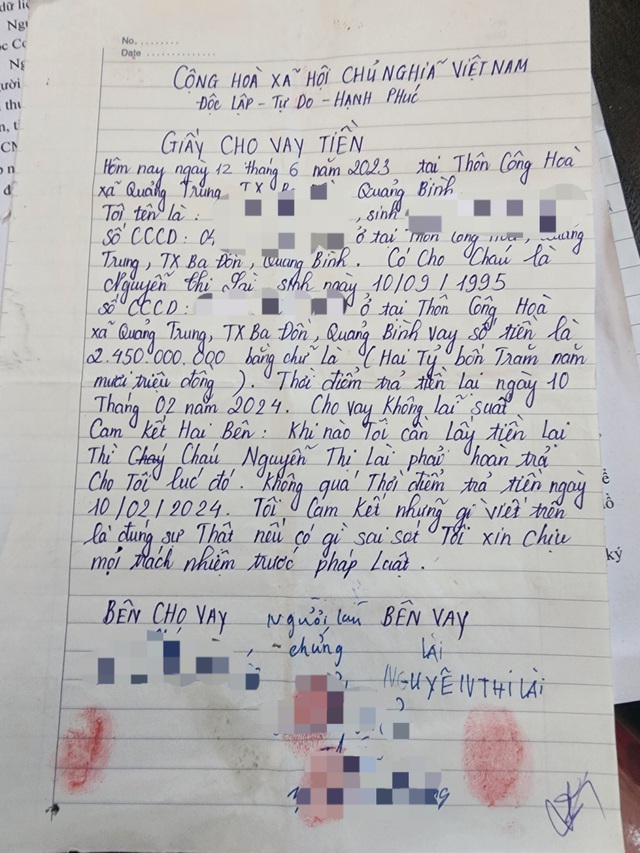 No. ........
Date ...............
CỘNG HOÀ XÃ HỘI CHỦ NGHĨA VIỆT NAM
ĐỘC LẬP - TỰ DO - HẠNH PHÚC
GIẤY CHO VAY TIỀN
Hôm nay ngày 12 tháng 6 năm 2023 tại Thôn Công Hoà
xã Quảng Trung TX Quảng Bình
Tôi tên là : , sinh
Số CCCD : 04 ở tại Thôn Công Hoà, Quảng
Trung, TX Ba Đồn, Quảng Bình. Có cho cháu là
Nguyễn thị Lài sinh ngày 10/09/1995
số CCCD : ở tại Thôn Công Hoà
xã Quảng Trung, TX Ba Đồn, Quảng Bình vay số tiền là
2.450.000.000 bằng chữ là (Hai Tỷ bốn Trăm năm
mươi triệu đồng ). Thời điểm trả tiền lại ngày 10
Tháng 02 năm 2024. Cho vay không lãi suất
Cam kết Hai Bên : Khi nào Tôi cần lấy tiền lại
Thì Cháu Nguyễn Thị Lài phải hoan trả
Cho Tôi lúc đó. Không quá Thời điểm trả tiền ngày
10/02/2024. Tôi Cam kết những gì viết trên
là đúng sự Thật nếu có gì sai sót Tôi xin chịu
mọi trách nhiệm trước pháp Luật.
BÊN CHO VAY Người làm BÊN VAY
chứng LÀI
NGUYỄN THỊ LÀI